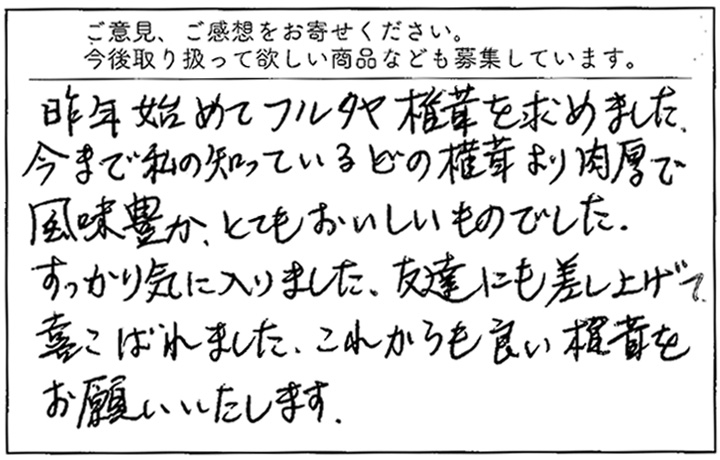 ご意見、ご感想をお寄せください。
今後取り扱って欲しい商品なども募集しています。
昨年始めてフルタヤ椎茸を求めました、
今まで私の知っているどの椎茸より肉厚で
風味豊か、とてもおいしいものでした。
すっかり気に入りました、友達にも差し上げて
喜こばれました、これからも良い椎茸を
お願いいたします.